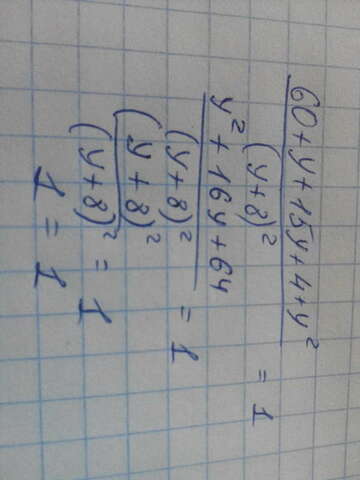 60+y+15y+4+y²
(y+8)² = 1
y²+16y+64
(y+8)² = 1
(y+8)²
(y+8)² = 1
1 = 1